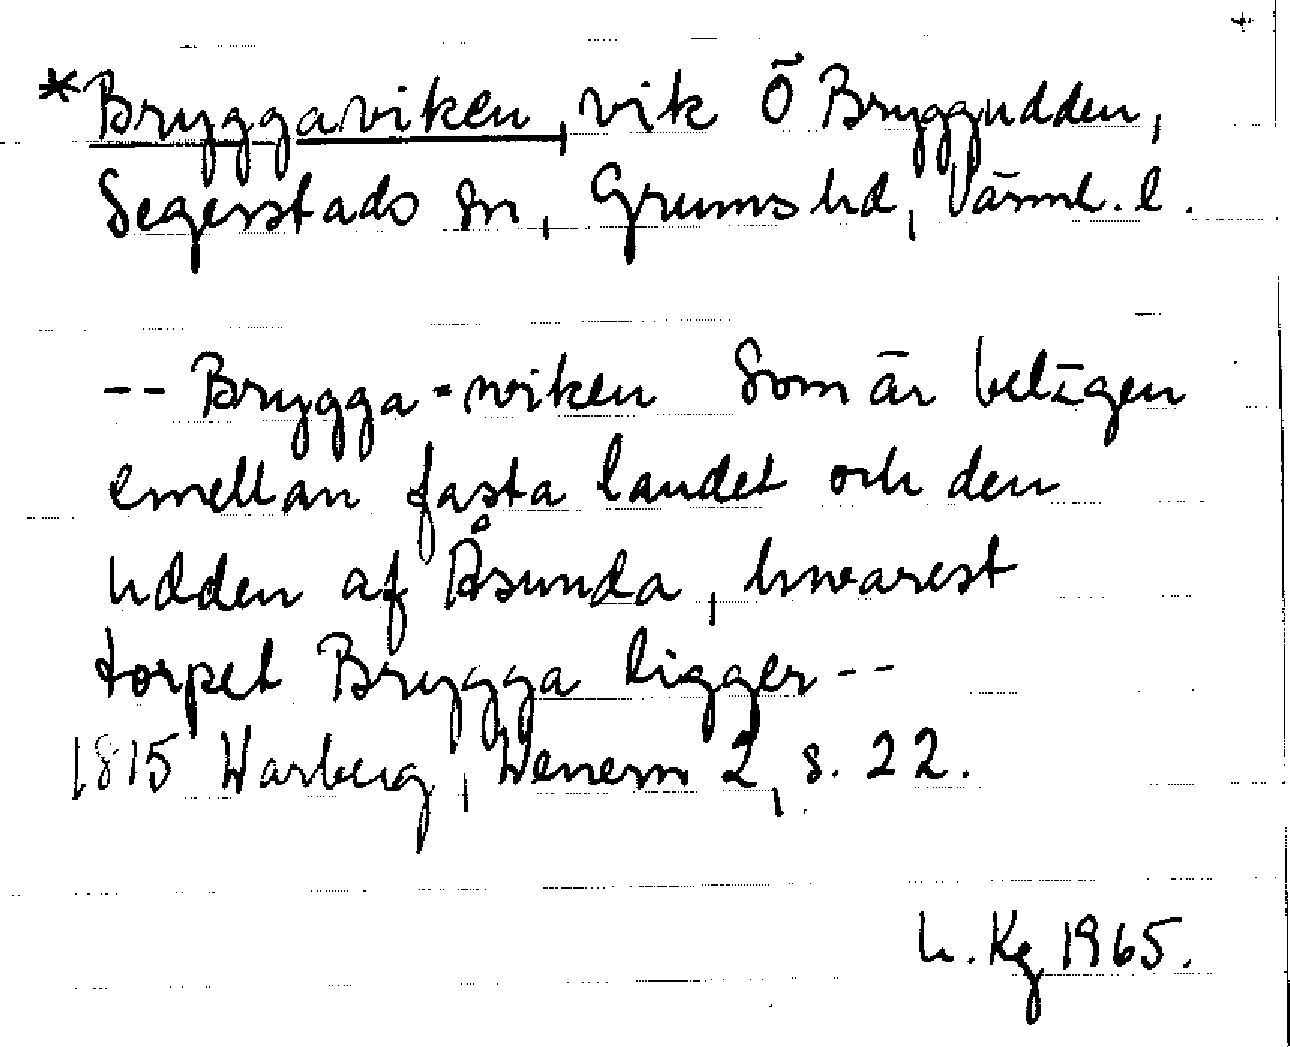 *Bryggaviken, vik Ö Bryggudden,
Segerstads sn, Grums hd, Värml. l.
-- Brygga-wiken Som är belägen
emellan fasta landet och den
udden af Åsunda, hwarest
torpet Brygga ligger --
1815 Warberg, Wenern 2, s. 22.
h. Kg 1965.